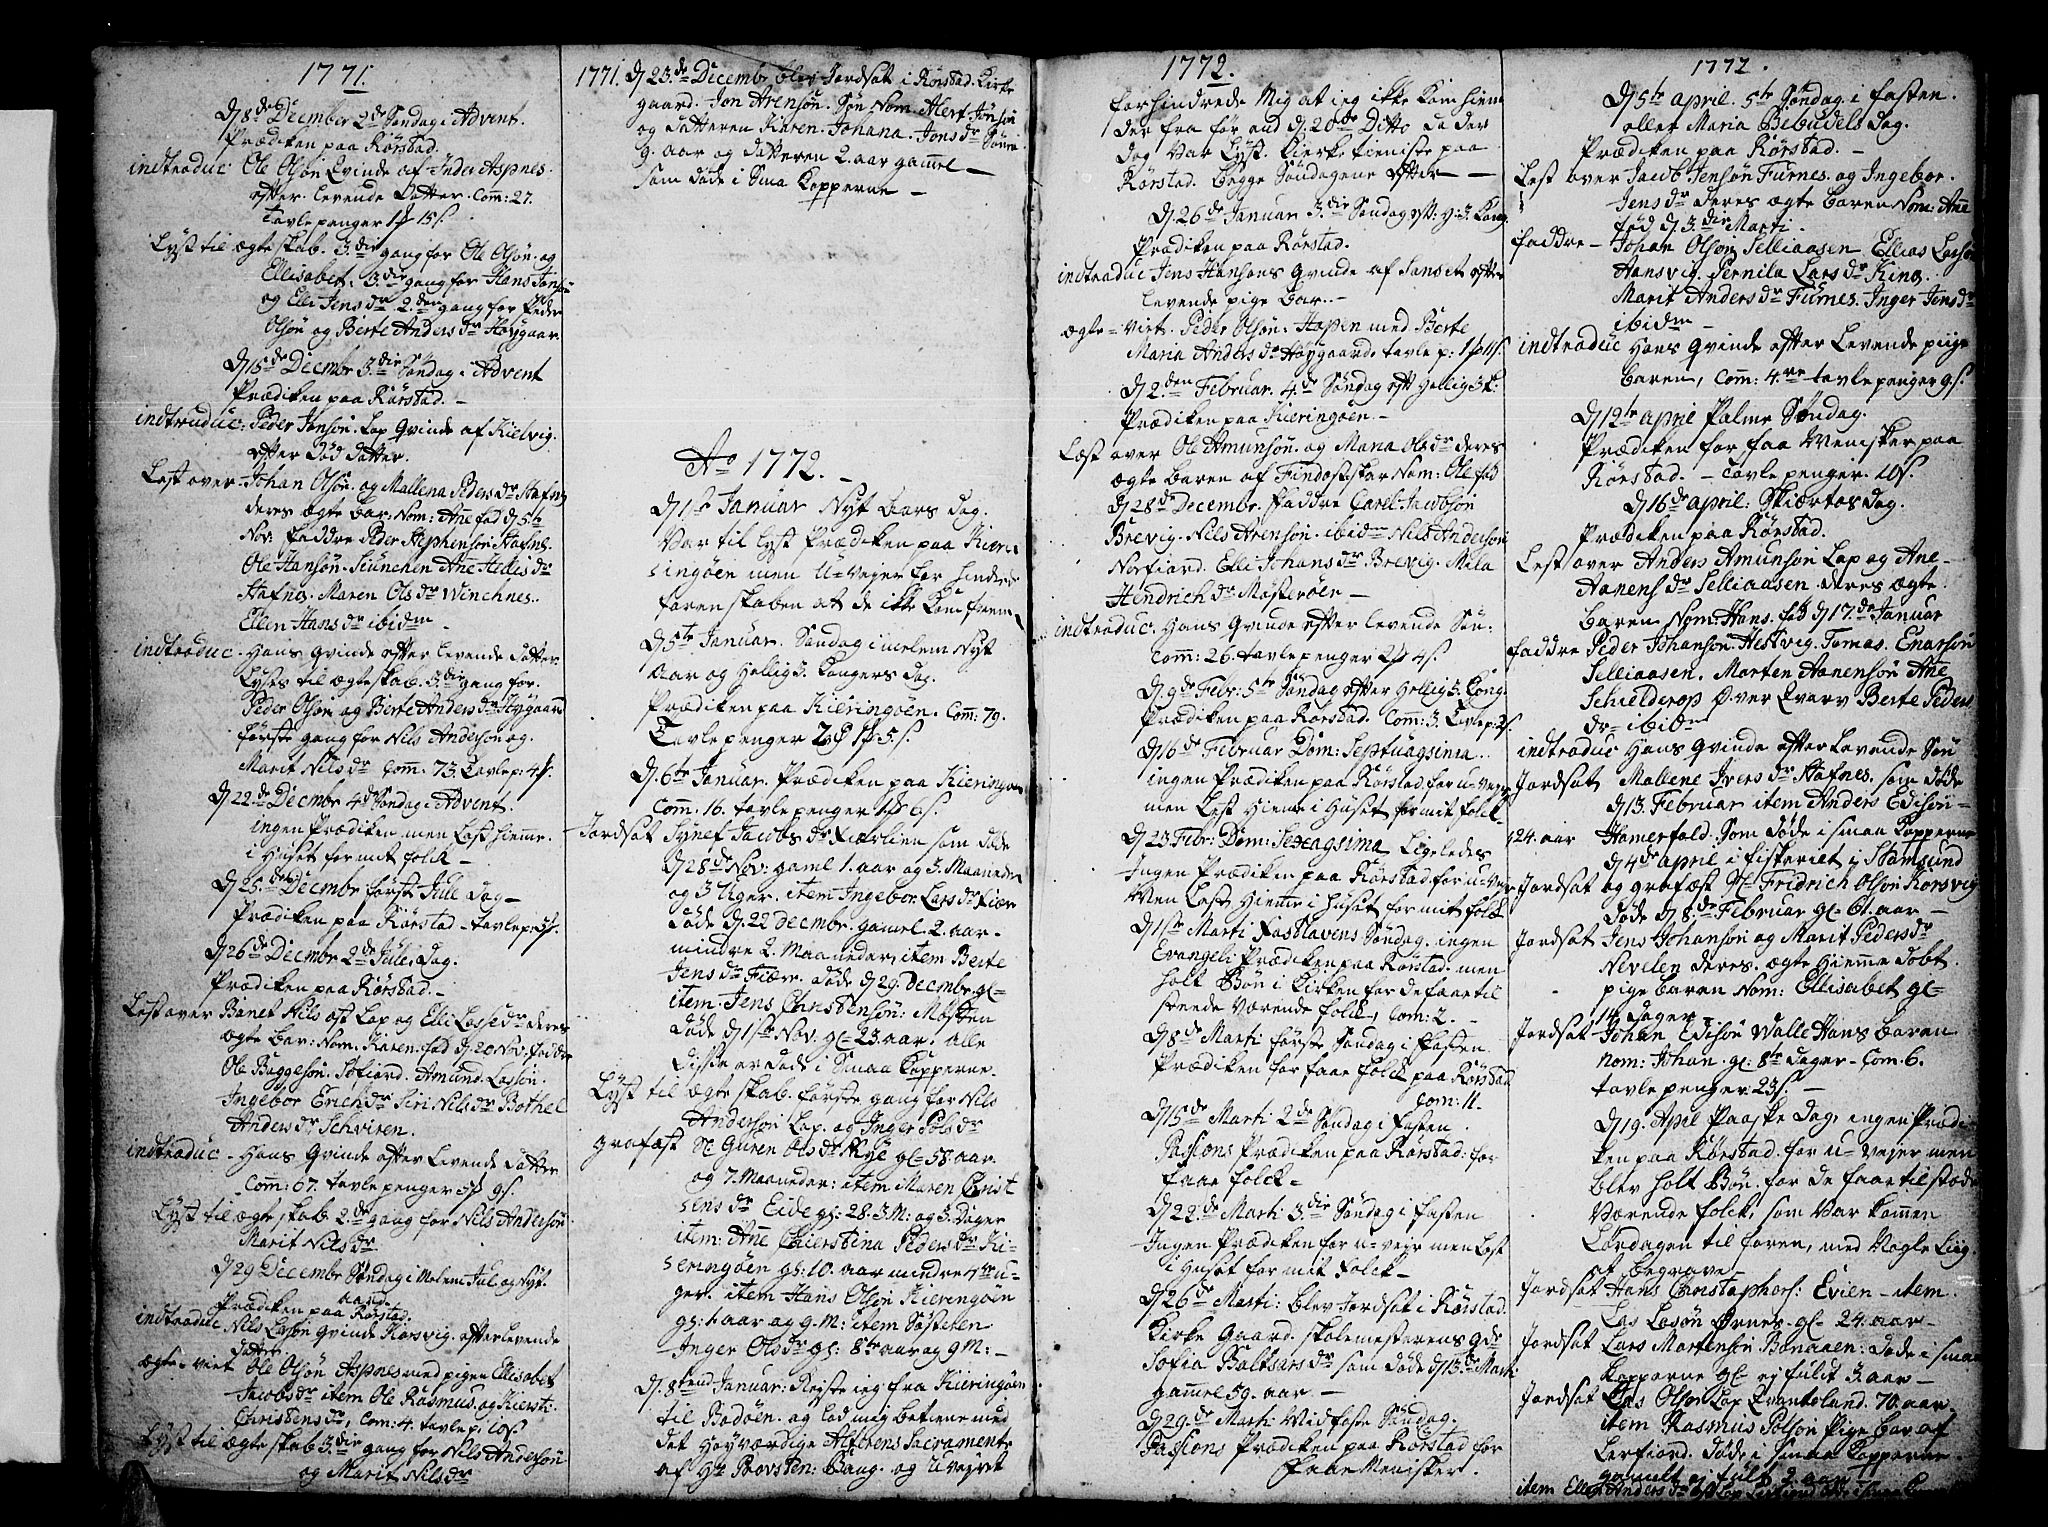 1771.
D 8de December 2de Søndag i Advent.
Prædiken paa Rörstad.
indtraduc Ole Olsön Qvinde af Inder Aspnes.
efter levende Datter. Com: 27.
tavle penger 15 s.
Lyst til ægteskab. 3die gang for Ole Olsøn og
Ellisabet, 3die gang for Hans Jonsøn
og Elli Jens dr 2den gang for Peder
Olsön og Berte Anders dr Höygaar.
D 15de Decembr 3die Søndag i Advent
Prædiken paa Rörstad. -
indtruduc: Peder Jonsön. Lap Qvinde af Kielvig.
efter död Datter.
Lest over Johan Olsön. og Mallena Peders dr Hafnes
deres ægte bar: Nom: Ane fød D 5te
Nov. faddre Peder Stephensön Hafnes.
Ole Hansön. Ane Hellies dr
Hafnes. Maren Ols dr Winchnes.
Ellen Hans dr ibidm -
indtraduc - Hans Qvinde efter levende Datter
Lyst til ægteskab. 3die gang for.
Peder Olsön og Berte Anders dr Höygaard
første gang for Nils Anderson og.
Marit Nils dr Com: 73. tavlep: 4
D 22de Decmbr 4de Søndag i Advent.
ingen Prædiken men Lest hieme.
i Huset for mit folck -
D 25de Decmbr første Jule Dag -
Prædiken paa Rörstad - tavlep:
D 26de Decmbr 2de Jule Dag.
Prædiken paa Rörstad. -
Lest over Banet Nils Lap og Elli Lasse dr deres
ægte bar: Nom. Karen. fød D 20 Nov: faddre
Ole Baggesön. Söfiord. Amund Lassön.
Ingebor Erich dr Siri Nils dr Bothel
Anders dr
indtraduc - Hans Qvinde efter Levende Datter
Com: 67. tavle penger 9 s.
Lyst til ægteskab 2de gang for Nils Andersön
Marit Nils dr
D 29 Decembr Søndag i Melem Jul og Nyt
aar.
Prædiken paa Rörstad.
indtraduc Nils Lasön Qvinde Korsvig. efter levende
Datter
ægte-viet Ole Olsön Aspnes med pigen Ellisabet
Jacobs dr item Ole Rasmus. og Kiersti
Christens dr, Com: 4. tavlep, 10 s.
Lyst til ægteskab 3die gang for Nils Andersön
og Marit Nils dr
1771. D 23.de Decembr blev Jordsat i Rörstad. Kirke
gaard. Jon Arensön. Søn Nom. Alert Jönsön
og Datteren Karen. Johana. Jons dr
9. aar og Datteren 2. aar gamel -
som döde i Sma Kopperne -
Ao 1772. -
D 1ste Januar Nyt Aars Dag.
Var til lyst Prædiken paa Kier
ingöen men U-Vejer for hindrede
at de ikke kom frem
D 5te Januar. Søndag imelem Nyt
aar og Hellig 3. Kongers Dag.
Prædiken paa Kieringöen. Com: 79.
Tavle penger 5. s.
D. 6te Januar. Prædiken paa Kieringöen
Com: 16. tavle penger 6 s.
Jordsat Synef Jacobs dr Kiærlien som döde
D 28de Nov: gaml 1. aar og 3. Maaneder
og 3 Uger. item Ingebor. Lars dr Fiær
Döde D. 22 Decmbr. gamel. 2. aar -
mindre 2. Maaneder, item Berte
Jens dr Fiær. Döde D 29. Decmbr. gl -
item. Jens Christensön: Mösten
döde D 1ste Nov. gl 23. aar. alle
disse er döde i Smaa Kopperne.
Lyst til ægteskab. første gang for Nils
Andersön Lap. og Inger Pols dr
grafæst Sl Guren Ols dr Rye gl 58. aar
og 7. Maaneder: item Maren Christ
sens dr Eide gl: 28. 3. M: og 3. Dager
item: Ane Chierstina Peders dr Ki-
eringöen gl: 10. aar mindre 4re u-
ger. item Hans Olsön Kieringöen
gl: 1 aar og 9. M: item Söskeben
Inger Ols dr gl: 8te aar og 9 M: -
D. 8tend Januar: Rejste ieg fra Kieringöen
til Bodöen. og lod mig betiene med
det Höyværdige Alterens Sacramente
af Hr Provsten: Bang. og U vejret
1772.
forhindrede Mig at jeg ikke kom hiem
der fra før end D. 20de Ditto da der
Dag Var lyst. Kierke tieniste paa
Rörstad. begge Søndagene efter -
D 26de Januar 3.die Søndag eft: H: 3. Kong.
Prædiken paa Rörstad.
indtraduc Jens Hansöns Qvinde af Sanset efter
levende pige bar. -
ægte-viet. Peder Olsön: Hopen med Berte
Maria Anders dr Höygaard tavle p:
D 2den Februar. 4.de Søndag eft Hellig 3 k:
Prædiken paa Kieringöen -
Læst over Ole Amunsön. og Maria Ols dr deres
ægte baren af Findostskar Nom: Ole fød
D 28de Decembr. Faddre Carel Jacobsön
Brevig. Nils Arensön. ibidm Nils Andersön
Norfiord. Elli Johans dr Brevig. Mila
Hendrich dr Mösteröen -
indtraduc. Hans Qvinde efter levende Sön:
Com: 26. tavle penger 4 s.
D. 9de Febr: 5te Søndag efter Hellig 3. Kong.
Prædiken paa Rörstad. Com: 3. tavlep: 2 s.
D 16de Februar Dom: Septuagsima.
ingen Prædiken paa Rörstad. for u-vejer
men Lest Hieme i Huset for mit folck -
D 23 Febr: Dom: Sexagsima Ligeledes
Ingen Prædiken paa Rörstad for u-vejr
Men Lest Hieme i Huset for mit folck
D 1ste Marti Fastlavens Søndag. ingen
Evangeli Prædiken paa Rörstad. men
holt Bön i Kirken for de faae til
steede værende folck, Com: 2. -
D 8de Marti første Søndag i Fasten.
Prædiken for faae folck paa Rörstad
Com: 11.
D 15de Marti 2de Søndag i Fasten.
Passions Prædiken paa Rörstad: for
faae folck -
D 22.de Marti 3.die Søndag i Fasten
Ingen Prædiken for u-vejr men Lest
i Huset for mit Folck -
D 26de Marti: blev Jordset i Rörstad.
Kirke Gaard. Skolemesterens Qde
Sofia Baltsars dr som döde D 13.de Marti
gammel 59. aar. -
D 29.de Marti Midfaste Søndag.
Passions Prædiken paa Rörstad for
faae Menisker.
1772.
D 5te april. 5te Søndag. i fasten.
eller Maria Bebudels Dag.
Prædiken paa Rörstad. -
Lest over Jacob Jensön Furnes. og Ingebor.
Jens dr deres ægte baren Nom: Ane
fød D. 3.die Marti.
faddre - Johan Olsön Selliaasen Ellias Lassön
Hansvig. Pernila Lars dr
Marit Anders dr Furnes. Inger Jens dr
ibidm -
indtraduc Hans Qvinde efter Levende piige
baren, Com: 4.re tavle penger 9 s.
D 12te april Palme Søndag.
Prædiken for faa Menisker paa
Rörstad. - tavle penger. 10 s.
D 16de april: Skiertors Dag.
Prædiken paa Rörstad.
Lest over Anders Amunsön Lap og Ane -
Aanens dr Selliaasen deres ægte
baren Nom: Hans. fød D 17.de Januar
faddre Peder Johanson. Hestvig. Tomas. Enarsön
Selliaasen. Morten Aanensön Ane
Schielderop Över Kvarv Berte Peders
dr - ibidm
indtraduc Hans Qvinde efter levende Sön
Jordsat Mallene Ivers dr Hafnes. som döde
D 13. Februar item Anders Edisön -
24. aar Hamerfald. Som döde i smaa Kopperne
D 4de april i fiskeriet i Stamsund
Jordsat og grafæst Sl Fridrich Olsön Korsvig
Döde D 8.de Februar gl - 61. aar -
Jordsat Jens Johanson og Marit Peders dr
Nevelen deres. ægte Hiemme döbt
pige baren Nom: Ellisabet gl -
14 dager -
Jordsat Johan Edisön Walle Hans baren
Nom: Johan gl: 8te Dager - Com 6.
tavle penger 23 s -
D 19. April Paaske Dag, ingen Prædi
ken paa Rörstad. for u-vejer men
blev holt Bön. for de faae tilstæde
værende folck, som Var kommen
Lørdagen til foren, med Nogle Liig.
at begrave -
Jordsat Hans Christaphors: Evien - item.
Las Lasön Örnes. gl - 24. aar -
Jordset Lars Martensön Bonaaen: Döde i smaa
Kopperne gl ej fulit 3. aar -
Jordsat Las Olsön Lap Qvantoland. 70. aar
item Rasmus Polsön Pige bar af
Lerfiord. döde i smaa Kopperne
gamelt ej fult 2. aar